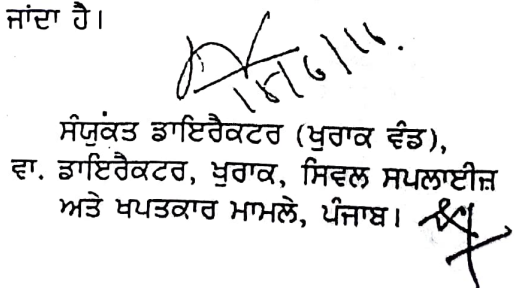 ਜਾਂਦਾ ਹੈ।
ਸੰਯੁਕਤ ਡਾਇਰੈਕਟਰ (ਖੁਰਾਕ ਵੰਡ),
ਵਾ. ਡਾਇਰੈਕਟਰ, ਖੁਰਾਕ, ਸਿਵਲ ਸਪਲਾਈਜ਼
ਅਤੇ ਖਪਤਕਾਰ ਮਾਮਲੇ, ਪੰਜਾਬ।